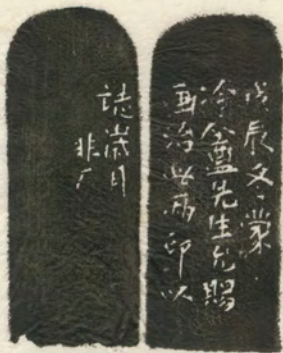 戊辰冬蒙
冷盦先生允賜
画治此兩印以
誌歲月
非厂